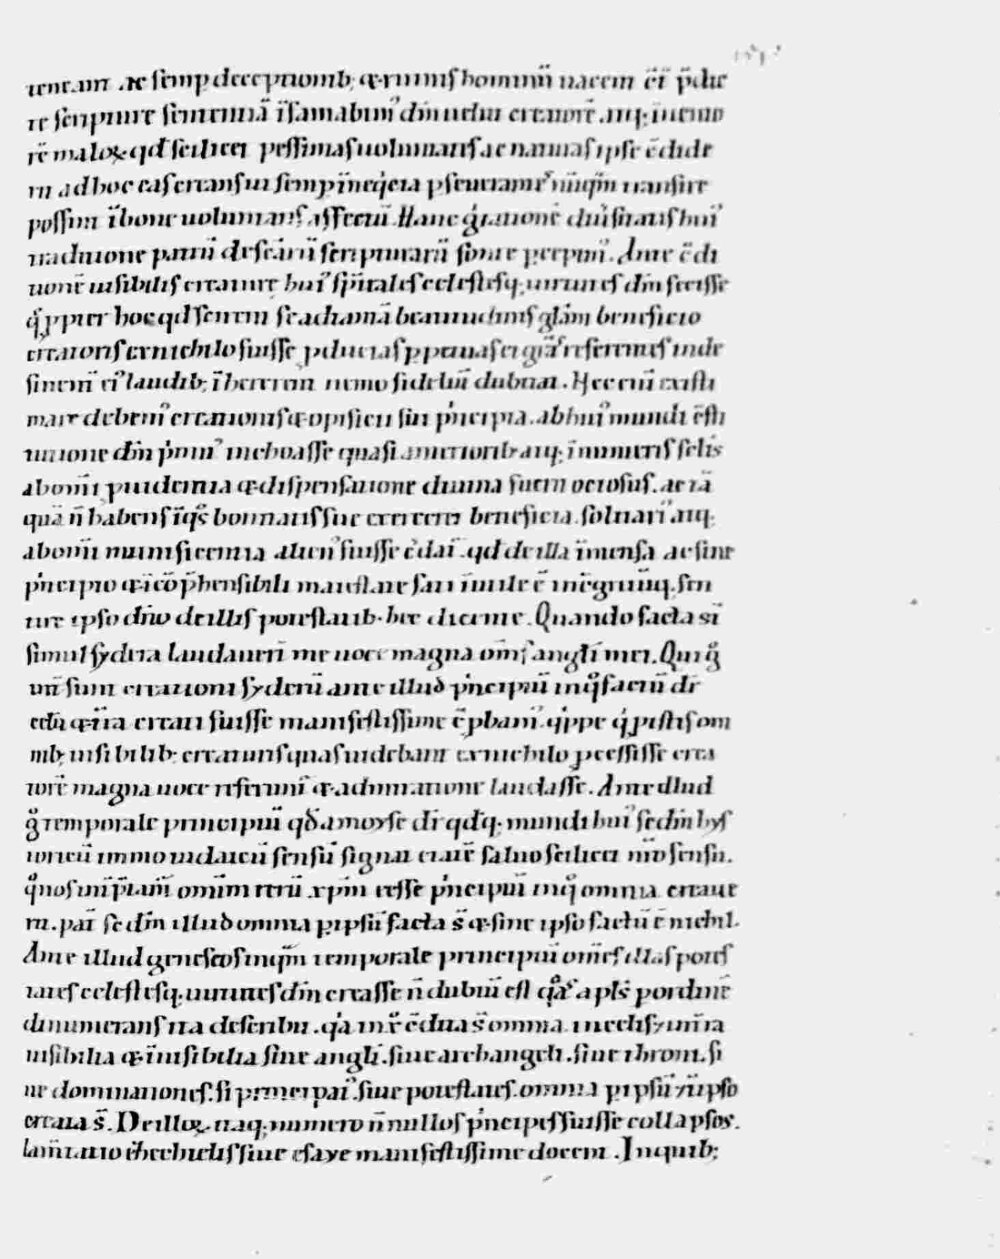 rent. utt ac semp deceptionib; & ruinis hominū uacent c̄t̄ p̄dic
te scripturę sententiā īfamabim᾽ dm̄ uelut creatorē atq; inuento
rē malox qd̄ scilicet pessimas uoluntates ac naturas ipse c̄dide
rit ad hoc eas creans ut semp īneq̇cia pseuerantes nūq̄m transire
possint ībone uoluntatis affectū. Hanc ġ rationē diūsitatis hui᾽
traditione patrū de scārū scripturarū fonte pcepim᾽. Ante c̄di
tionē uisibilis creaturę hui᾽ sp̄itales celestesq; uirtutes dm̄ fecisse
q̊ ppter hoc qd̄ scirent se ad tantā beatitudinis gl̄am beneficio
creatoris ex nichilo fuisse pductas ppetuas ei grā᾽ referentes inde
sinent᾽ ei᾽ laudib; īhererent nemo fidelium dubitat. Nec enī existi
mare debem᾽ creationis & opificii sui p̍ncipia. ab hui᾽ mundi c̄sti
tutione dm̄ p̍mit᾽ inchoasse quasi anteriorib; atq; īnumeris sc̄lis
ab omī puidentia & dispensatione diuina fuerit ociosus. ac tā
quā n̄ habens īq̊s bonitatis sue exerceret beneficia. solitari᾽ atq;
ab omī munificentia alien᾽ fuisse c̄dat᾽. qd̄ de illa īmensa ac sine
p̍ncipio & īc̄ōp̄hensibili maiestate sat īmite ē īc̄gruūq; sen
tire ipso dn̄o de illis potestatib. hec dicente. Quando facta st̄
simul sydera laudauert̄ me uoce magna om̄s angli mei. Qui g̊
īt̄sunt creationi syderū ante illud p̍ncipiū inq̊ factū dr̄
celū & t̄ra creati fuisse manifestissime c̄pbant᾽. q̍ppe q̍ pistis om
nib; uisibilib; creaturis quas uidebant ex nichilo pcessisse crea
torē magna uoce referunt᾽ & admiratione laudasse. Ante illud
g̊ temporale principiū qd̄ a moyse dr̄ qd̄q; mundi hui᾽ sc̄dm hys
toricū immo iudaicū sensū signat etatē saluo scilicet nr̄o sensu.
q̊ nos int̄p̄tam᾽ omm̄ rerū xp̄m eēsse p̍ncipiū inq̊ omnia creauit
pat᾽ sc̄dm illud omnia p ipsū facta st̄ & sine ipso factū ē nichil.
Ante illud geneseos inq̄m temporale principiū om̄s illas potes
tates celestesq; uirtutes dm̄ creasse n̄ dubiū est q̄s᾽ apl̄s p ordinē
dinumerans ita describit. q̍a in x̄ c̄dita st̄ omnia in celis & in t̄ra
uisibilia & īuisibilia siue angli. siue archangeli. siue throni. si
ue dominationes. si principat᾽. siue potestates. omnia p ipsū & ī ipso
creata st̄. De illox itaq; numero n̄nullos p̍ncipes fuisse collapsos.
lam̄tatio ezechielis siue esaye manifestissime docent. In quib;